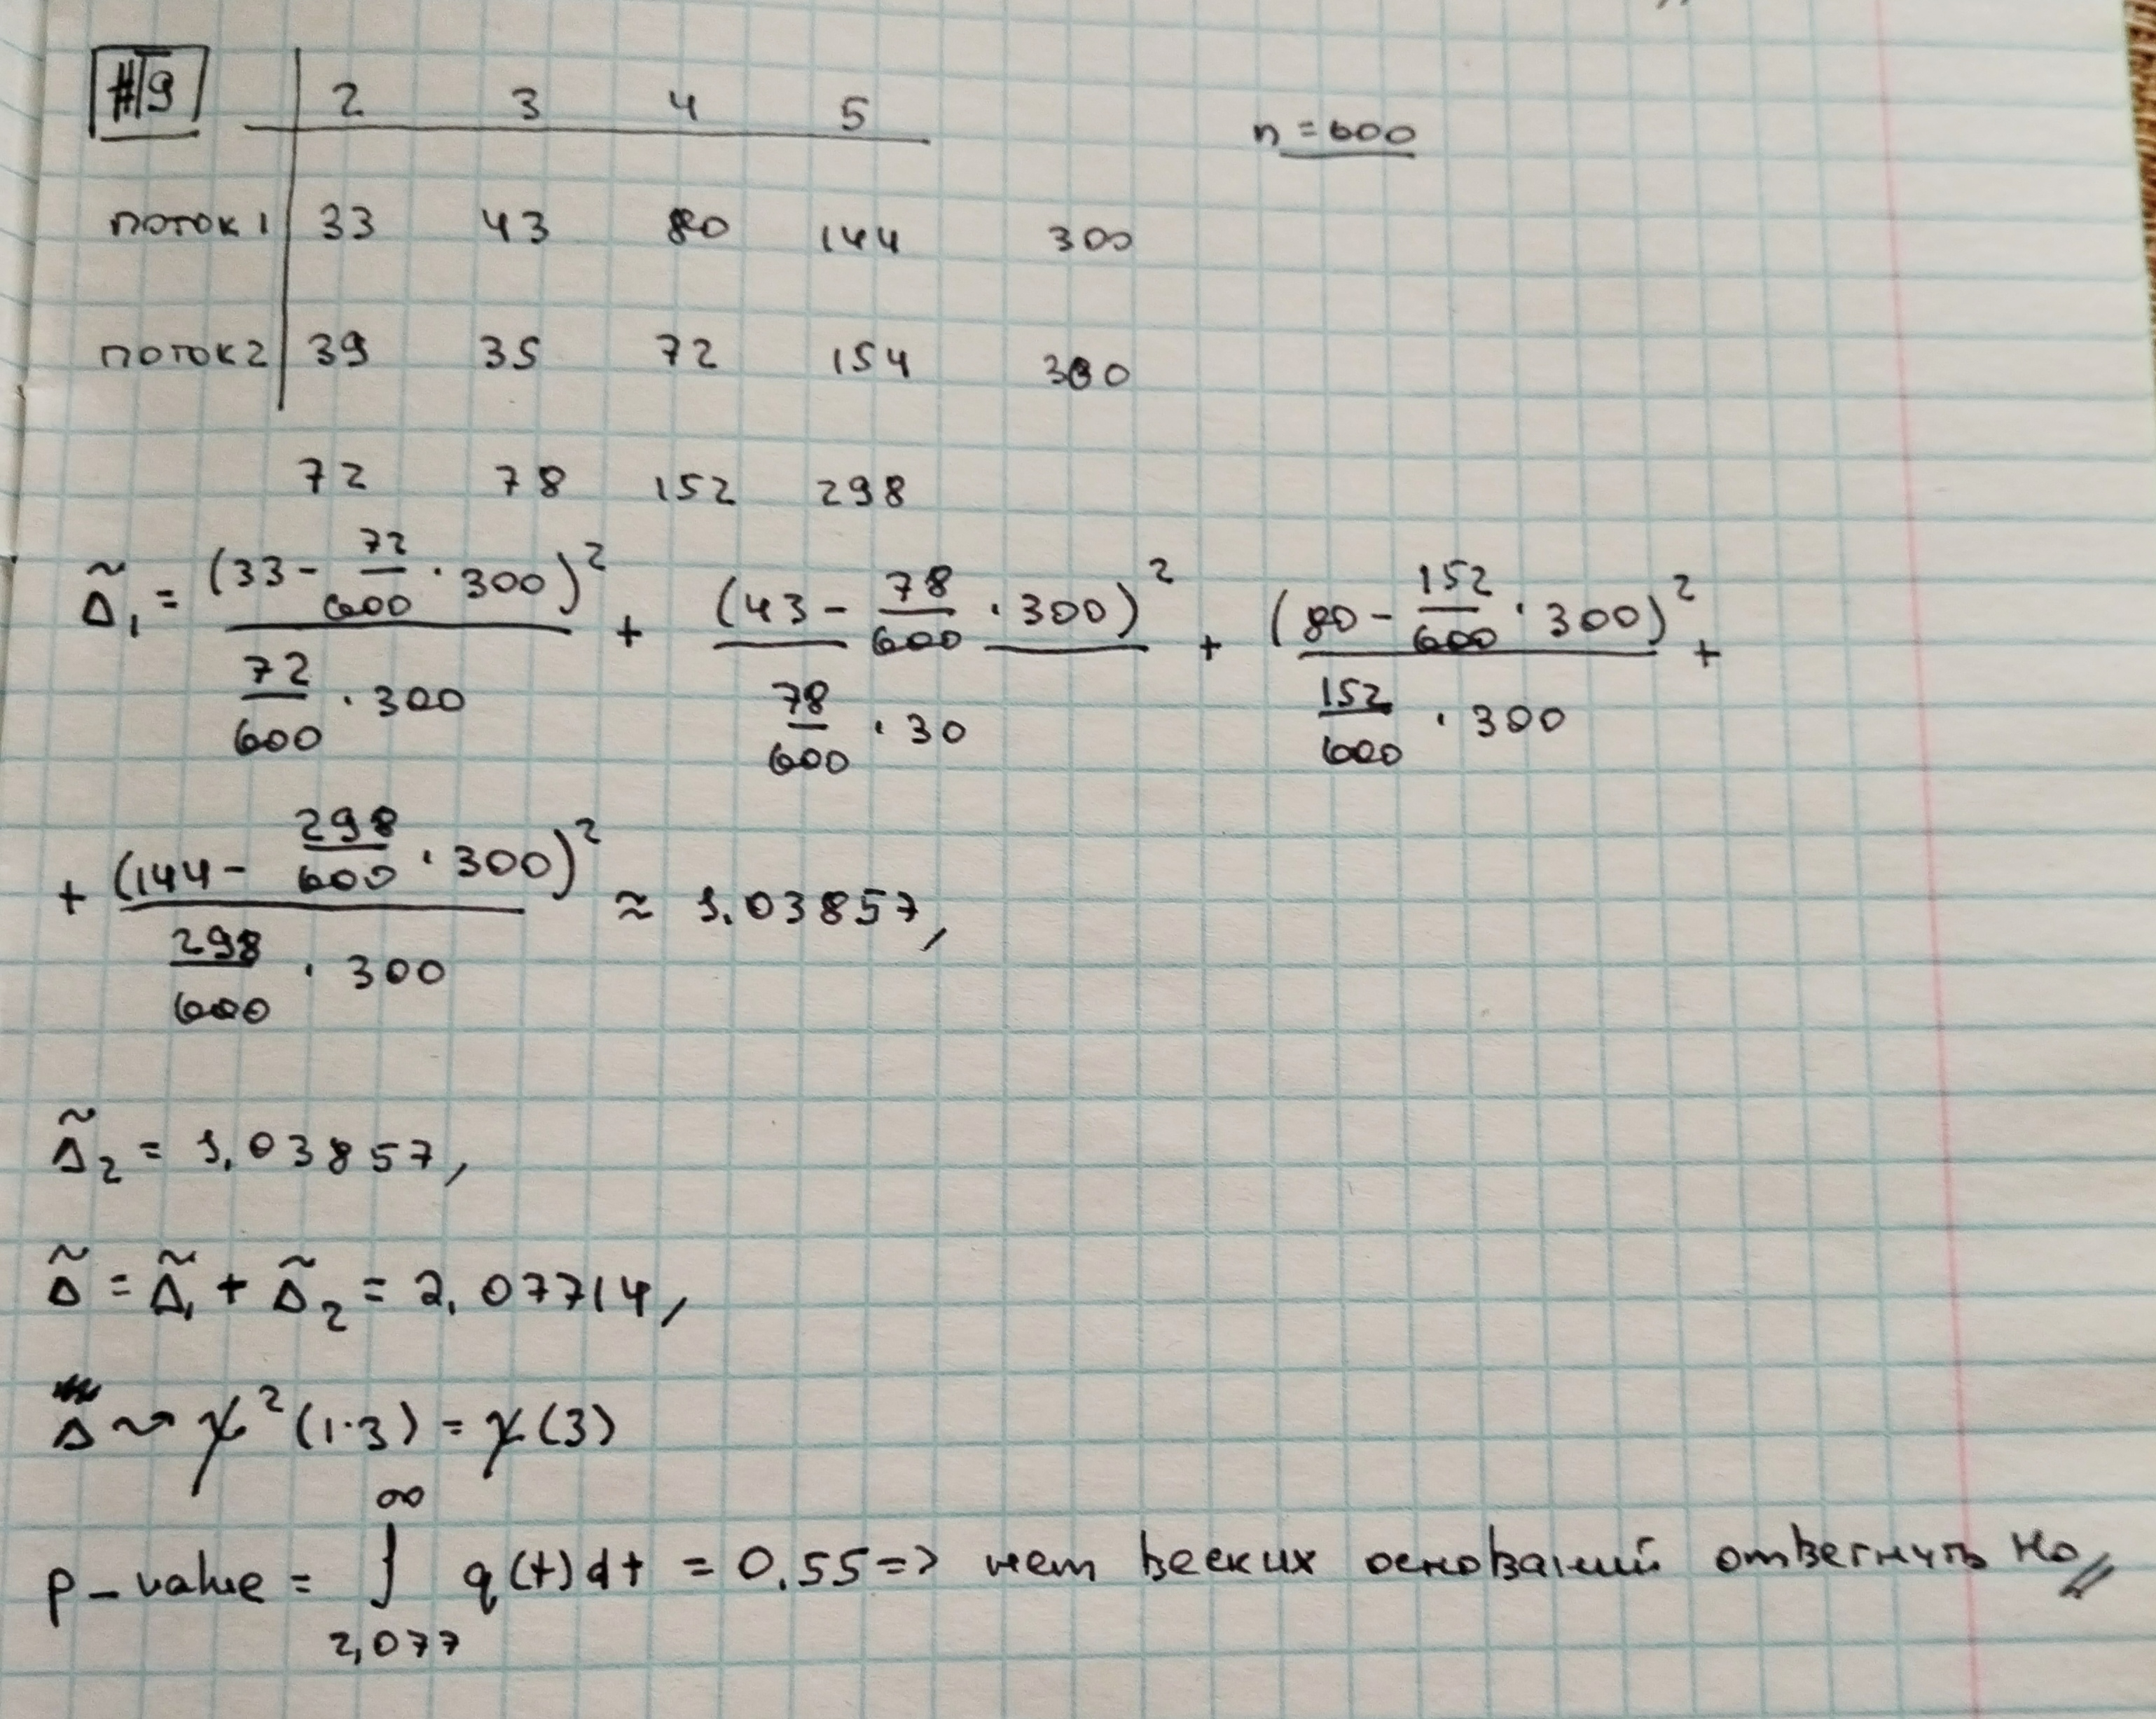 #T9
2 3 4 5
n = 600
поток 1 33 43 80 144 300
поток 2 39 35 72 154 300
72 78 152 298
Δ̃₁ = (33 - 72/600 · 300)² / (72/600 · 300) + (43 - 78/600 · 300)² / (78/600 · 30) + (80 - 152/600 · 300)² / (152/600 · 300) +
+ (144 - 298/600 · 300)² / (298/600 · 300) ≈ 1.03857,
Δ̃₂ = 1.03857,
Δ̃ = Δ̃₁ + Δ̃₂ = 2.07714,
Δ ~> χ²(1·3) = χ(3)
p-value = ∫_{2,077}^{∞} q(t)dt = 0.55 => нет веских оснований отвергнуть H₀//